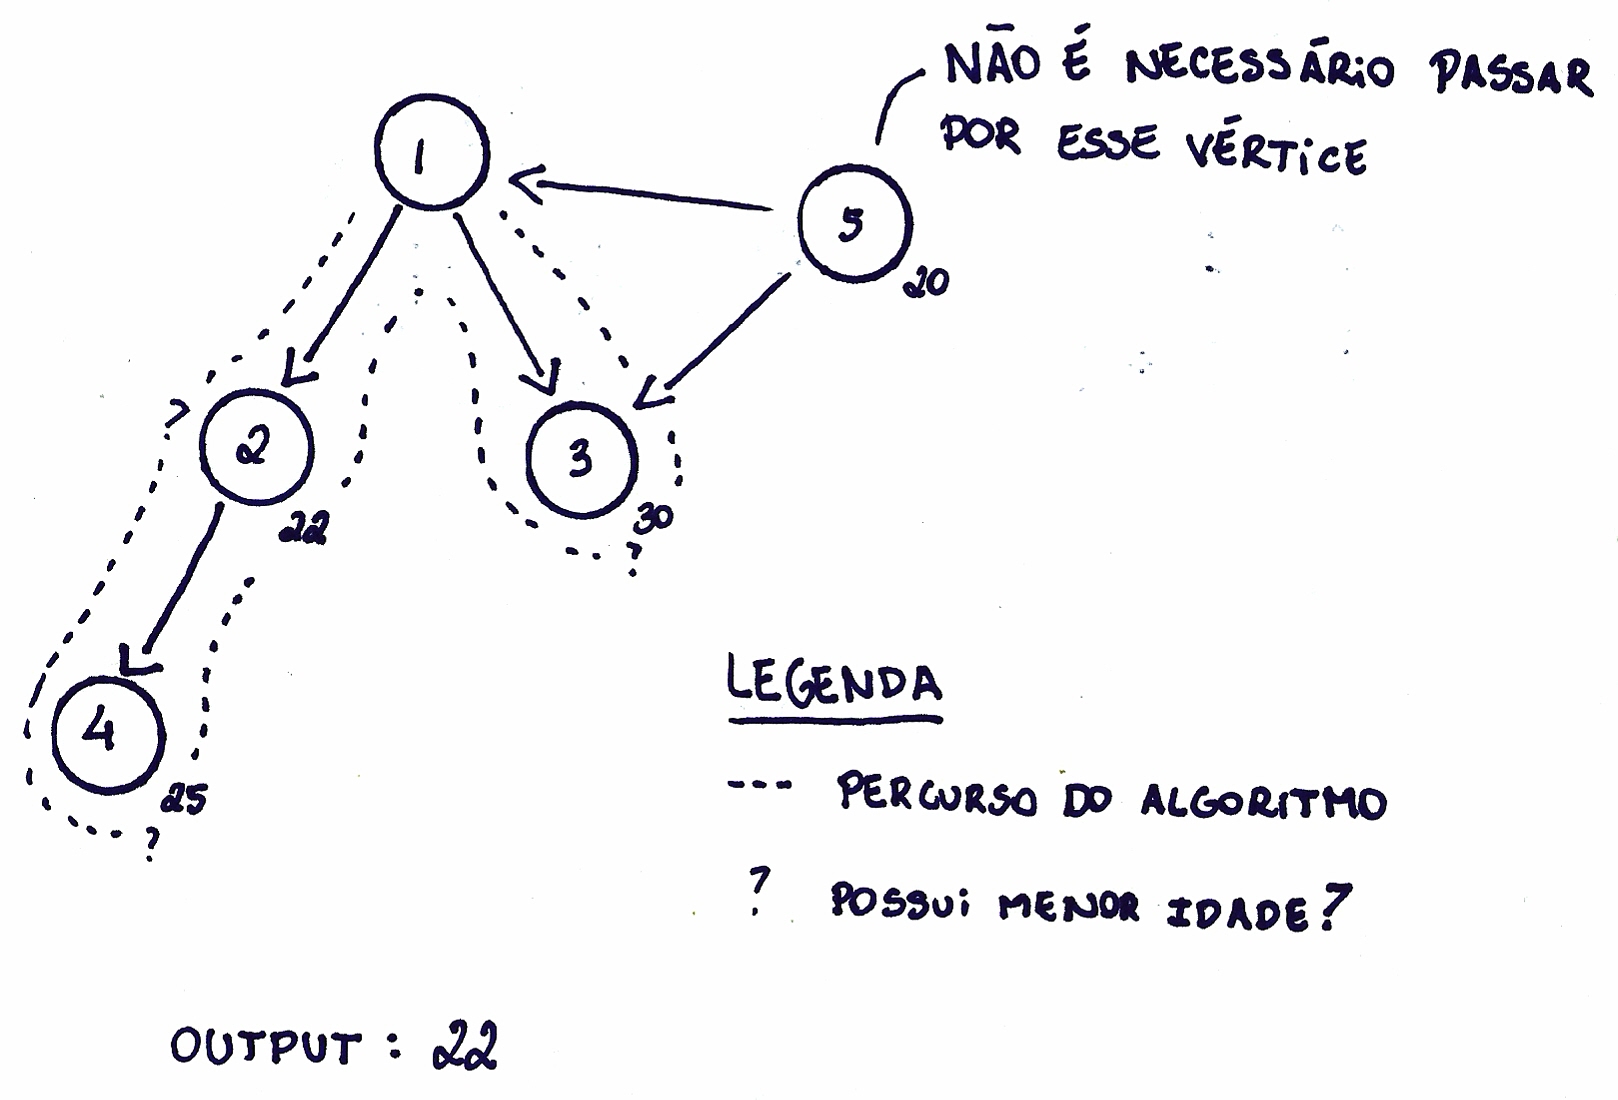 NÃO É NECESSÁRiO PASSAR
POR ESSE VÉRTiCE
1
5
20
?
2
22
3
30
?
4
25
?
LEGENDA
--- PERCURSO DO ALGORiTMO
? POSSUi MENOR IDADE?
OUTPUT : 22